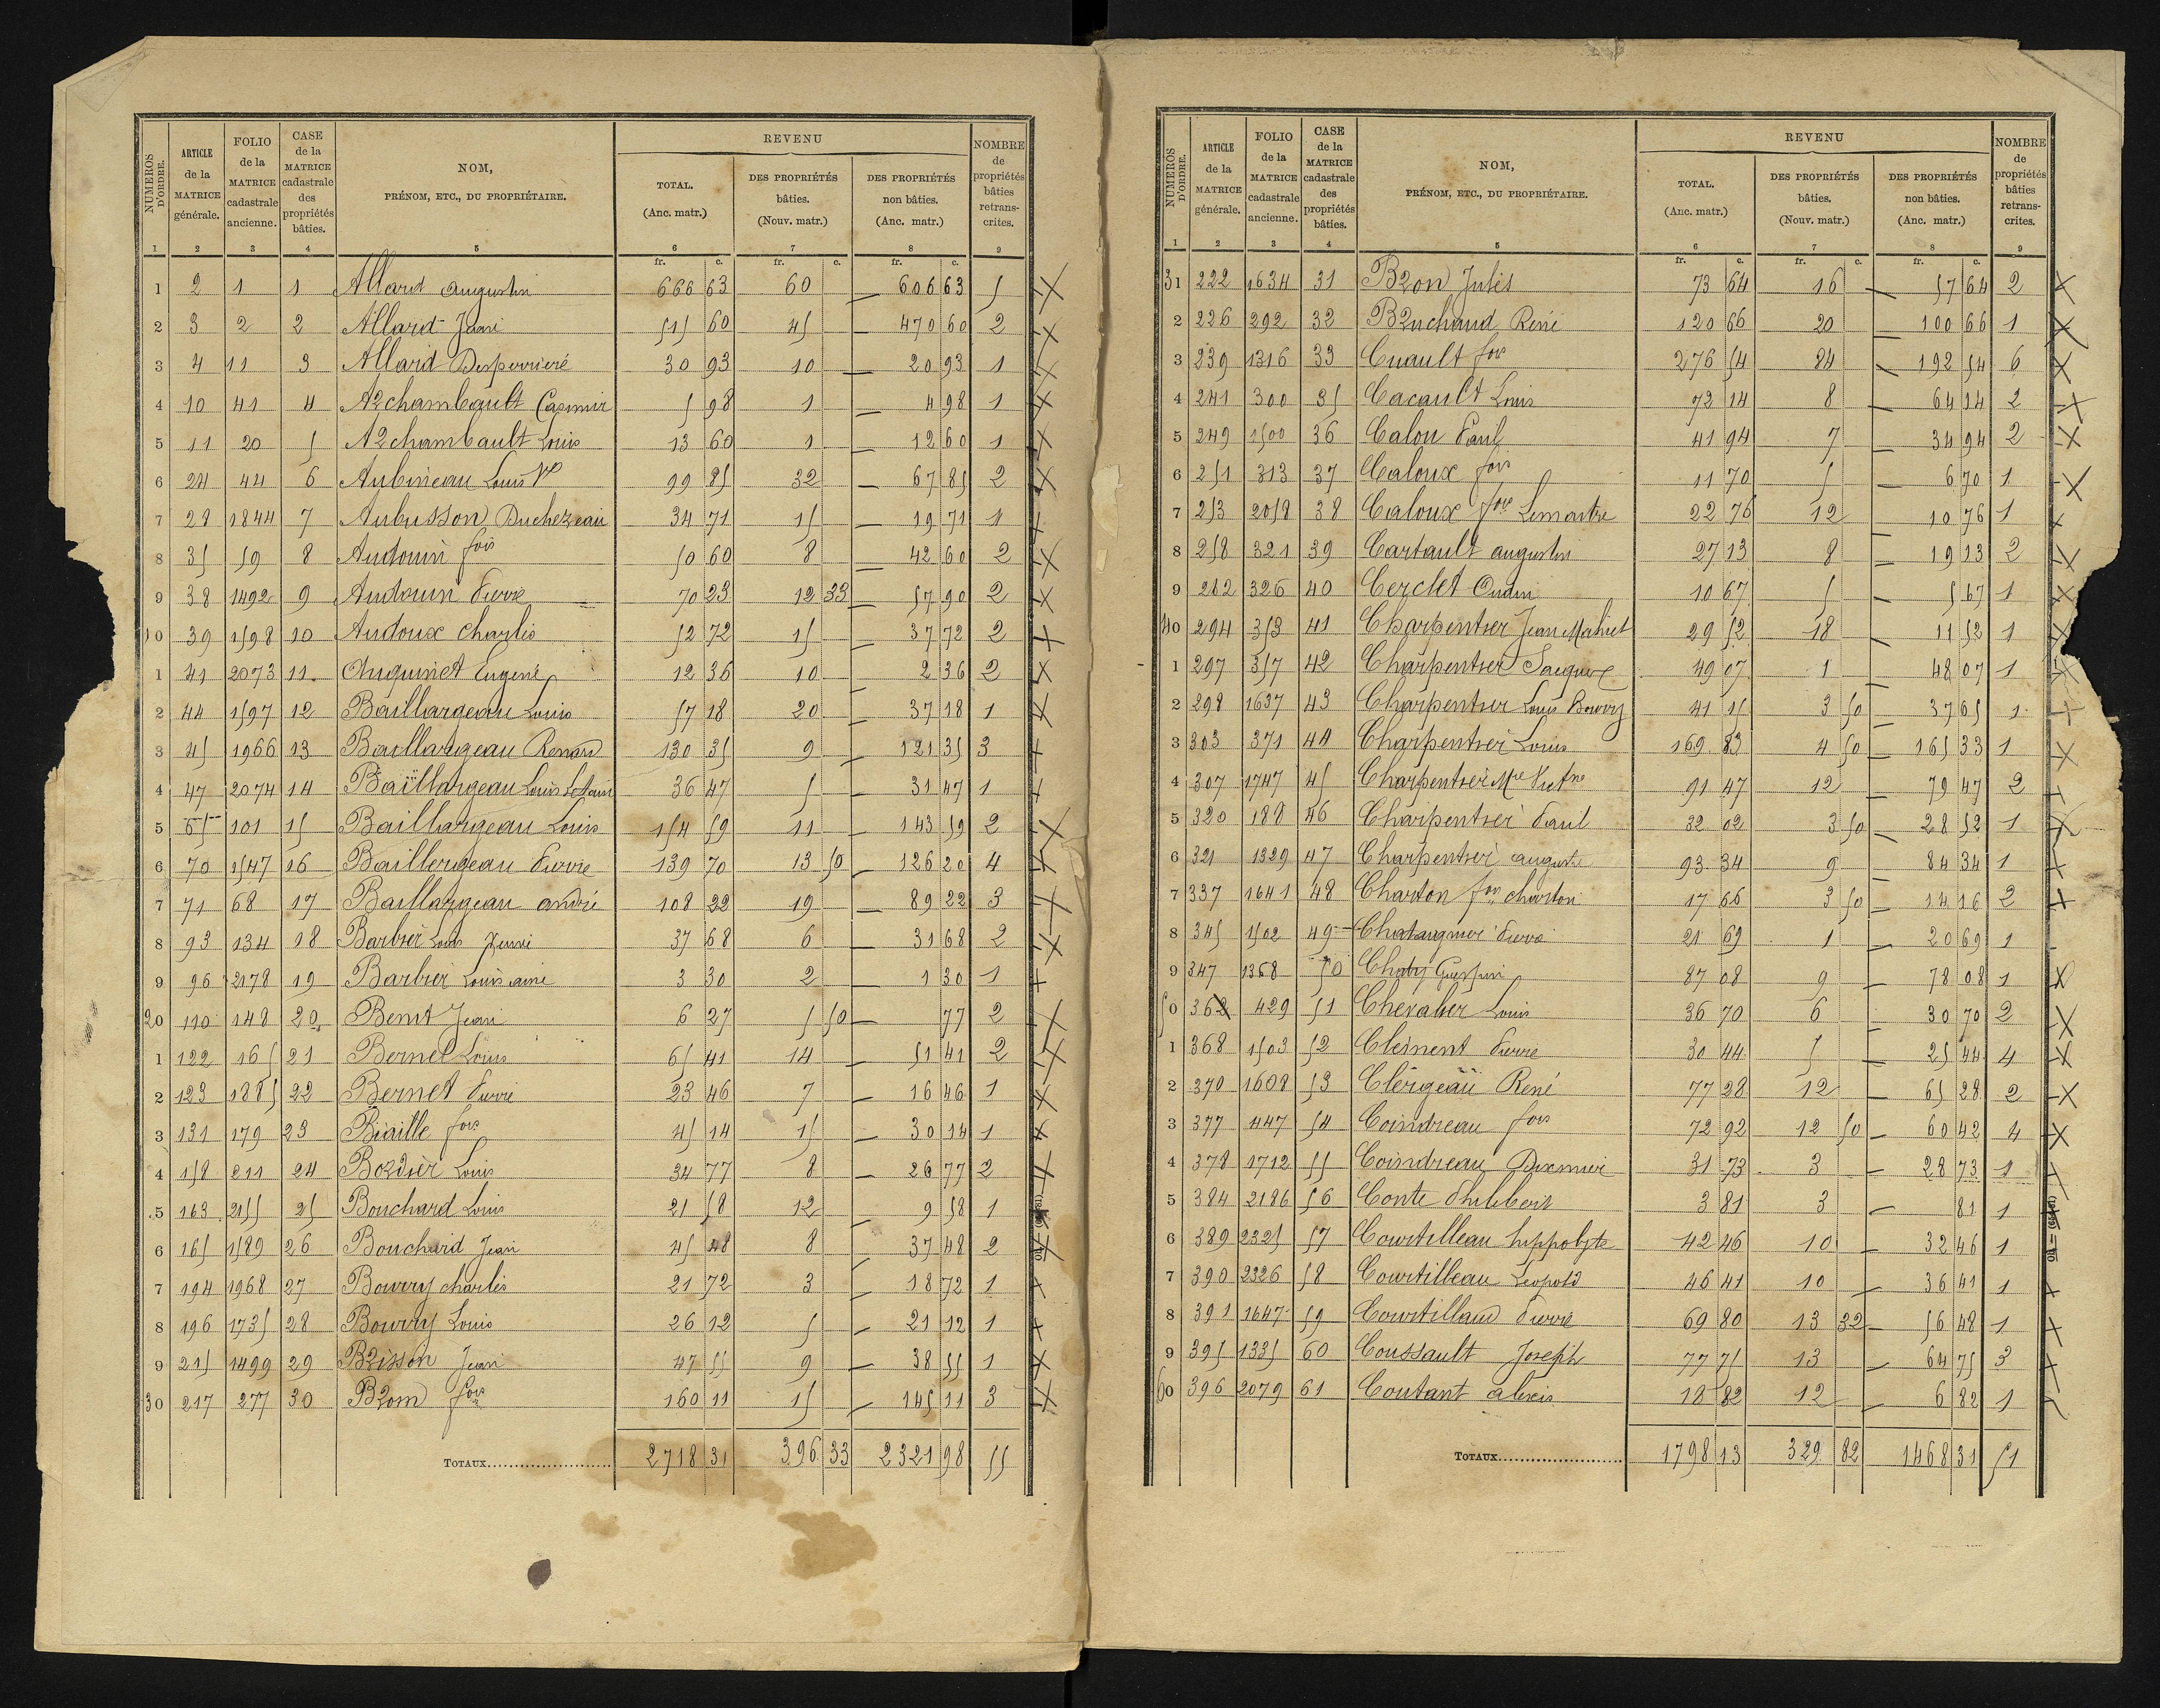 NUMÉROS D'ORDRE. ARTICLE de la MATRICE générale. FOLIO de la MATRICE cadastrale ancienne. CASE de la MATRICE cadastrale des propriétés bâties. NOM, PRÉNOM, ETC., DU PROPRIÉTAIRE. REVENU TOTAL. (Anc. matr.) DES PROPRIÉTÉS bâties. (Nouv. matr.) DES PROPRIÉTÉS non bâties. (Anc. matr.) NOMBRE de propriétés bâties retranscrites.
1 2 3 4 5 6 7 8 9
fr. c. fr. c. fr. c.
1 2 1 1 Allard augustin 666 63 60 — 606 63 5
2 3 2 2 Allard Jean 515 60 45 — 470 60 2
3 4 11 3 Allard Desperriere 30 93 10 — 20 93 1
4 10 41 4 Archambault Casimir 5 98 1 — 4 98 1
5 11 20 5 Archambault Louis 13 60 1 — 12 60 1
6 24 44 6 Aubineau Louis Ve 99 85 32 — 67 85 2
7 28 1844 7 Aubusson Duchezeau 34 71 15 — 19 71 1
8 35 59 8 Audouin fois 50 60 8 — 42 60 2
9 38 1492 9 Audouin Pierre 70 23 12 33 — 57 90 2
10 39 1598 10 Audoux Charles 52 72 15 — 37 72 2
1 41 2073 11 Auguinet Eugene 12 36 10 2 36 2
2 44 1597 12 Baillargeau Louis 57 18 20 — 37 18 1
3 45 1966 13 Baillargeau Renard 130 35 9 — 121 35 3
4 47 2074 14 Baillargeau Louis 36 47 5 — 31 47 1
5 65 101 15 Baillargeau Louis 154 59 11 — 143 59 2
6 70 1547 16 Baillergeau Pierre 139 70 13 50 — 126 20 4
7 71 68 17 Baillargeau andré 108 22 19 — 89 22 3
8 93 134 18 Barbier Louis 37 68 6 — 31 68 2
9 96 2178 19 Barbier Louis aine 3 30 2 — 1 30 1
20 110 148 20 Benit Jean 6 27 5 50 — 77 2
1 122 165 21 Bernet Louis 65 41 14 — 51 41 2
2 123 1885 22 Bernet Pierre 23 46 7 — 16 46 1
3 131 179 23 Biaille fois 45 14 15 — 30 14 1
4 158 211 24 Bordier Louis 34 77 8 — 26 77 2
5 163 2155 25 Bouchard Louis 21 58 12 9 58 1
6 165 1589 26 Bouchard Jean 45 48 8 — 37 48 2
7 194 1968 27 Bourry charles 21 72 3 — 18 72 1
8 196 1735 28 Bourry Louis 26 12 5 — 21 12 1
9 215 1499 29 Brisson Jean 47 55 9 — 38 55 1
30 217 277 30 Brom fois 160 11 15 — 145 11 3
TOTAUX 2718 31 396 33 2321 98 55
NUMÉROS D'ORDRE. ARTICLE de la MATRICE générale. FOLIO de la MATRICE cadastrale ancienne. CASE de la MATRICE cadastrale des propriétés bâties. NOM, PRÉNOM, ETC., DU PROPRIÉTAIRE. REVENU TOTAL. (Anc. matr.) DES PROPRIÉTÉS bâties. (Nouv. matr.) DES PROPRIÉTÉS non bâties. (Anc. matr.) NOMBRE de propriétés bâties retranscrites.
1 2 3 4 5 6 7 8 9
fr. c. fr. c. fr. c.
31 222 1634 31 Bron Jules 73 64 16 — 57 64 2
2 226 292 32 Bruchaud René 120 66 20 — 100 66 1
3 239 1316 33 Cuault fois 276 54 84 — 192 54 6
4 241 300 35 Cacault Louis 72 14 8 — 64 14 2
5 249 1500 36 Calou Paul 41 94 7 — 34 94 2
6 251 313 37 Caloux fois 11 70 5 — 6 70 1
7 253 2058 38 Caloux Lemaitre 22 76 12 — 10 76 1
8 258 321 39 Cartault augustin 27 13 8 — 19 13 2
9 262 326 40 Cerclet Oudin 10 67 5 — 5 67 1
40 294 353 41 Charpentier Jean Mahiet 29 52 18 — 11 52 1
1 297 357 42 Charpentier Jacques 49 07 1 48 07 1
2 298 1637 43 Charpentier Louis Bourry 41 15 3 50 — 37 65 1
3 303 371 44 Charpentier Louis 169 83 4 50 — 165 33 1
4 307 1747 45 Charpentier 91 47 12 — 79 47 2
5 320 188 46 Charpentier Paul 32 02 3 50 — 28 52 1
6 321 1329 47 Charpentier auguste 93 34 9 — 84 34 1
7 337 1641 48 Charton charton 17 66 3 50 — 14 16 2
8 345 1502 49 Chataigner Pierre 21 69 1 — 20 69 1
9 347 1368 50 Chaby 87 08 9 — 78 08 1
50 362 429 51 Chevalier Louis 36 70 6 — 30 70 2
1 368 1503 52 Clement Pierre 30 44 5 — 25 44 4
2 370 1608 53 Clergeau René 77 28 12 — 65 28 2
3 377 447 54 Coindreau fois 72 92 12 50 — 60 42 4
4 378 1712 55 Coindreau Dixmier 31 73 3 — 28 73 1
5 384 2186 56 Conte Philibert 3 81 3 — 81 1
6 389 2325 57 Courtilleau hippolyte 42 46 10 — 32 46 1
7 390 2326 58 Courtilleau Leopold 46 41 10 — 36 41 1
8 391 1647 59 Courtillaud Pierre 69 80 13 32 — 56 48 1
9 395 1335 60 Coussault Joseph 77 75 13 — 64 75 3
60 396 2079 61 Coutant alexis 18 82 12 — 6 82 1
TOTAUX 1798 13 329 82 1468 31 51